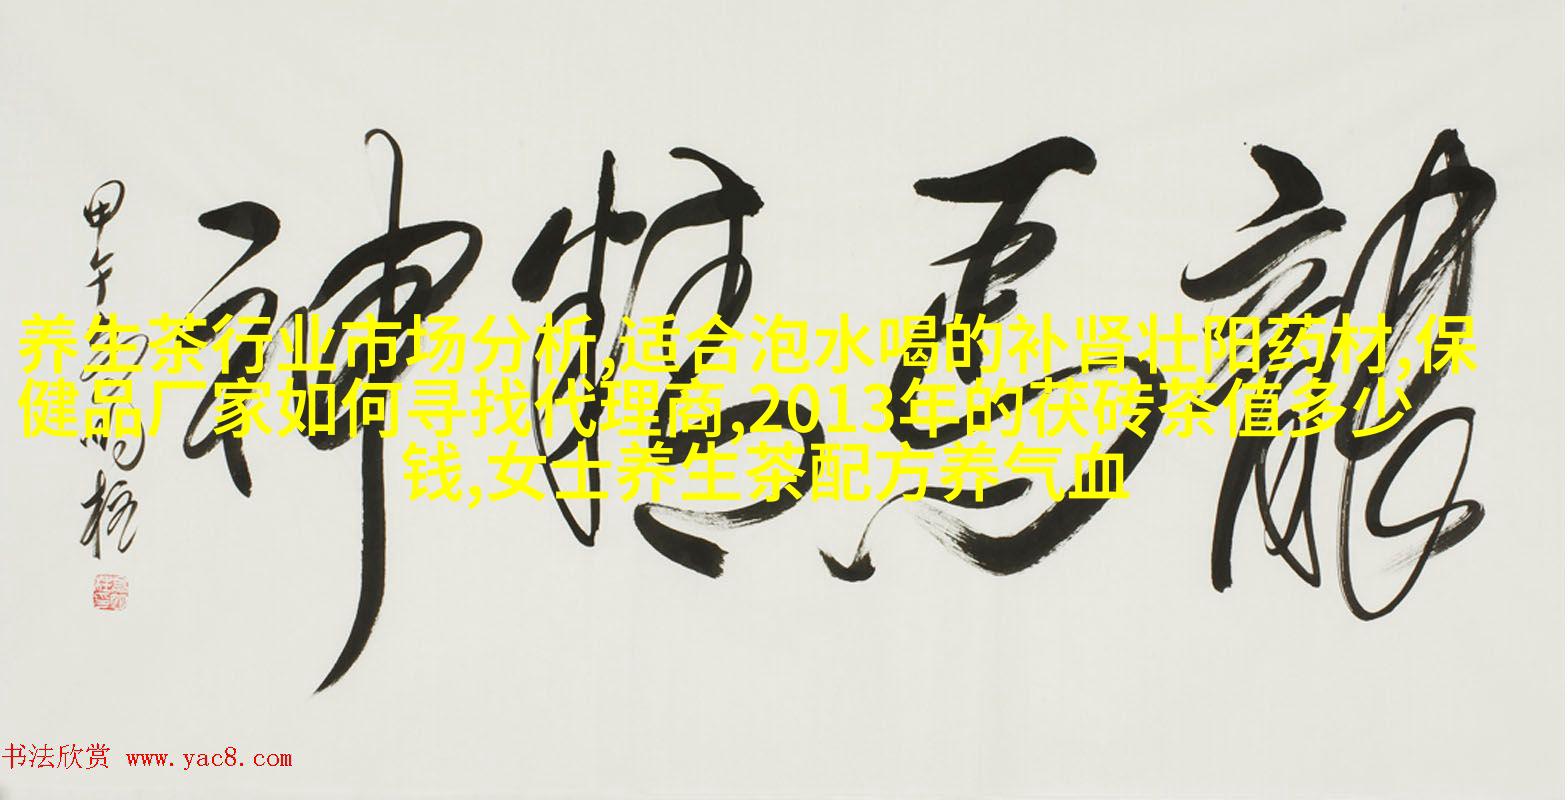 龍馬精神
甲午
养生茶行业市场分析,适合泡水喝的补肾壮阳药材,保
健品厂家如何寻找代理商,2013年的茯砖茶值多少
钱,女士养生茶配方养气血
书法欣赏 www.yac8.com